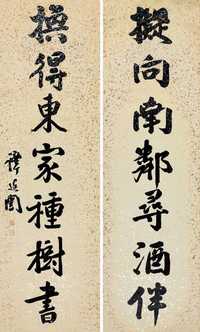 擬向南鄰尋酒伴
換得東家種樹書
譚延闓